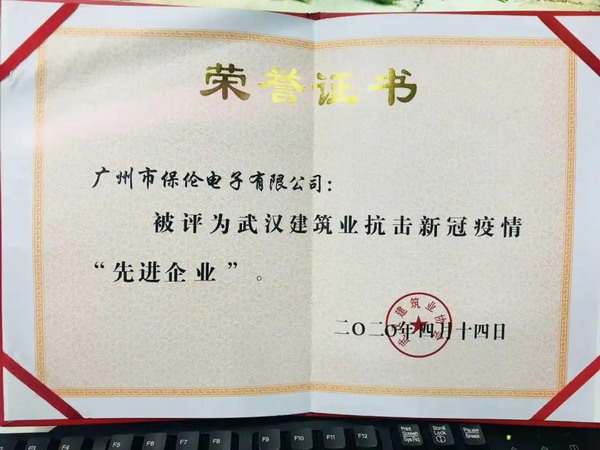 荣誉证书
广州市保伦电子有限公司：
被评为武汉建筑业抗击新冠疫情
“先进企业”。
武汉建筑业协会
二〇二〇年四月十四日
F4
F5
F6
F7
F8
F9
F10
F11
F12
Print Screen SysRq
Scroll Lock
Pause Break